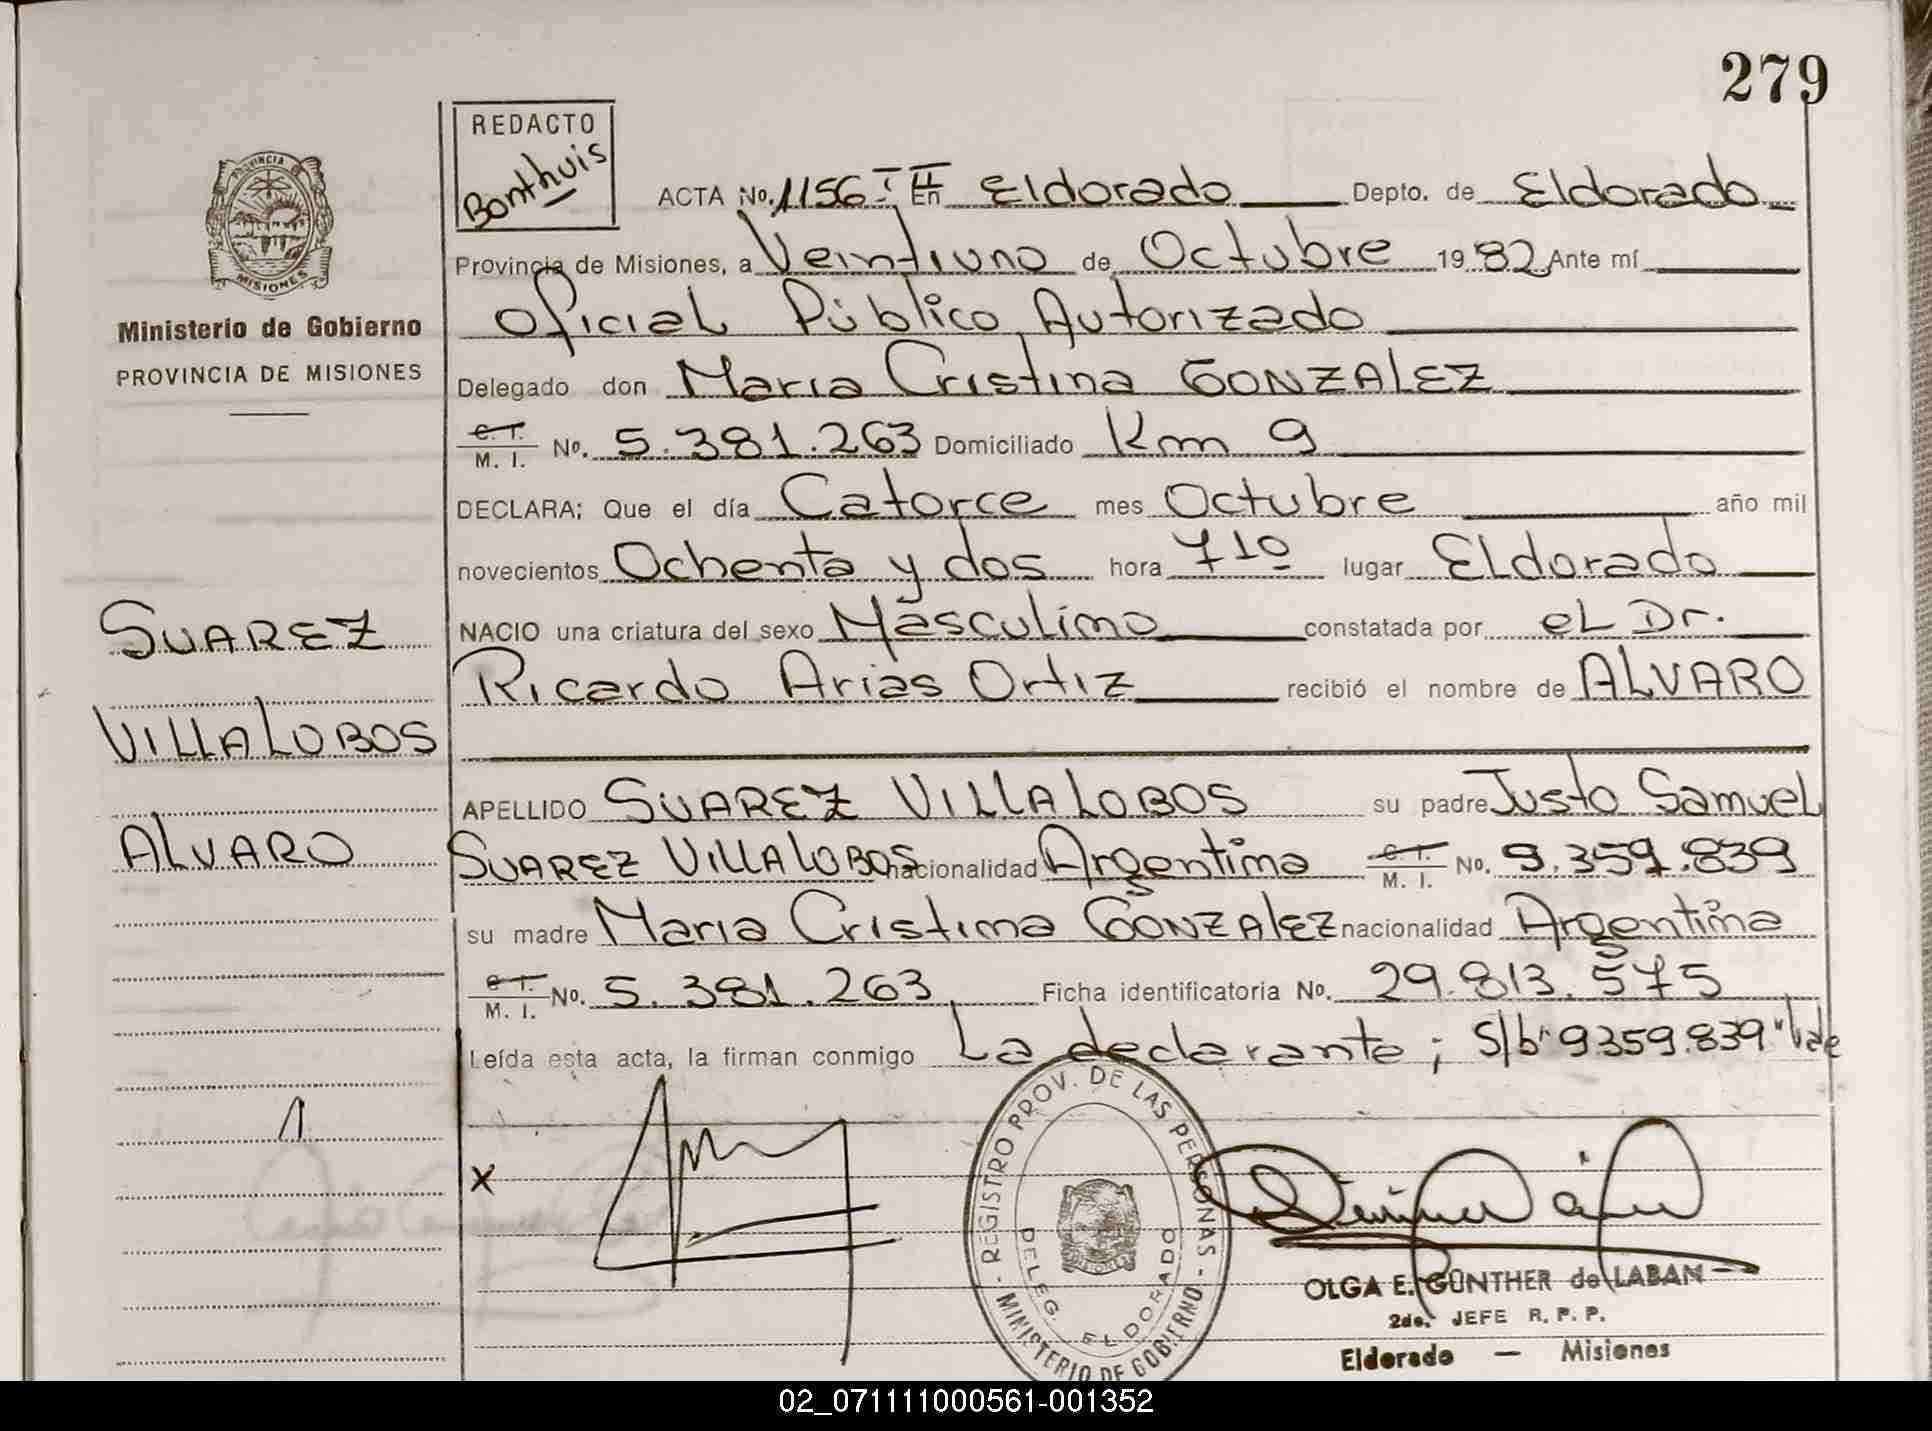 279
REDACTO
Bonthuis
PROVINCIA DE
MISIONES
Ministerio de Gobierno
PROVINCIA DE MISIONES
ACTA No. 1156 T II En Eldorado Depto. de Eldorado
Provincia de Misiones, a Veintiuno de Octubre 1982 Ante mí
Oficial Público Autorizado
Delegado don Maria Cristina GONZALEZ
C. I. M. I. No. 5.381.263 Domiciliado Km 9
DECLARA; Que el día Catorce mes Octubre año mil
novecientos Ochenta y dos hora 7 10 lugar Eldorado
NACIO una criatura del sexo Masculino constatada por el Dr.
Ricardo Arias Ortiz recibió el nombre de ALVARO
APELLIDO SUAREZ VILLALOBOS su padre Justo Samuel
SUAREZ VILLALOBOS nacionalidad Argentina C. I. M. I. No. 9.359.839
su madre Maria Cristina GONZALEZ nacionalidad Argentina
C. I. M. I. No. 5.381.263 Ficha identificatoria No. 29.813.575
Leída esta acta, la firman conmigo La declarante; S/b "9359.839" Vale
SUAREZ
VILLALOBOS
ALVARO
1
X
REGISTRO PROV. DE LAS PERSONAS - MINISTERIO DE GOBIERNO -
DELEG. ELDORADO
MISIONES
OLGA E. GÜNTHER de LABAN
2do. JEFE R. P. P.
Eldorado — Misiones
02_071111000561-001352